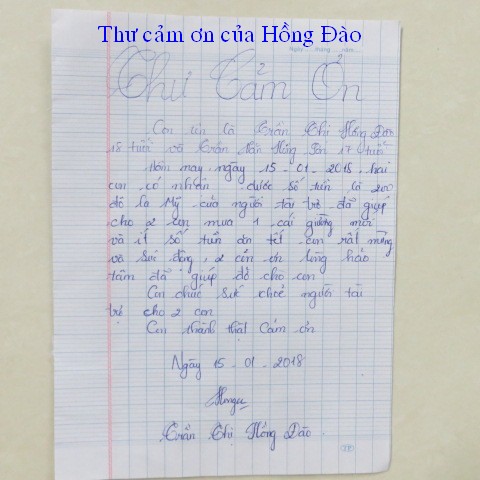 Thư cảm ơn của Hồng Đào
Ngày tháng năm
Thư Cảm Ơn
Con tên là Trần Thị Hồng Đào
18 tuổi và Trần Hồng 17 tuổi
Hôm nay ngày 15 - 01 - 2018, hai
con có nhận được số tiền là 200
đô la Mỹ của người tài trợ đã giúp
cho 2 con mua 1 cái giường mới
và ít số tiền ăn tết con rất mừng
và sực động, 2 cón ơn lòng hảo
tâm đã giúp đỡ cho con
Con chúc sức khoẻ người tài
trợ cho 2 con
Con thành thật Cảm ơn
Ngày 15 - 01 - 2018
Trần Thị Hồng Đào